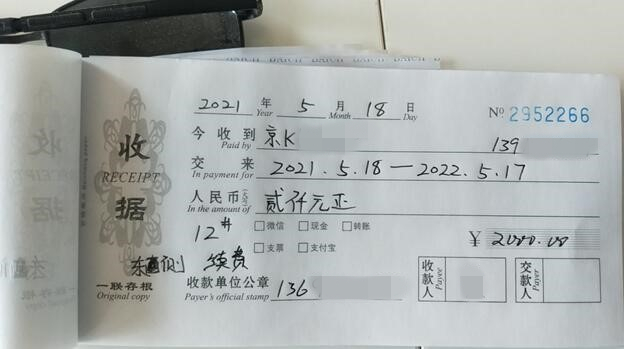 2021 年 Year 5 月 Month 18 日 Day
No 2952266
今收到 Paid by 京K 139
交来 In payment for 2021.5.18—2022.5.17
人民币(大写) In the amount of 贰仟元正
12#
□微信 □现金 □转账
□支票 □支付宝
¥ 2000.00
续费
收款单位公章 Payer's official stamp 136
收款人 Payee
交款人 Payer
收据
RECEIPT
一联存根
Original copy